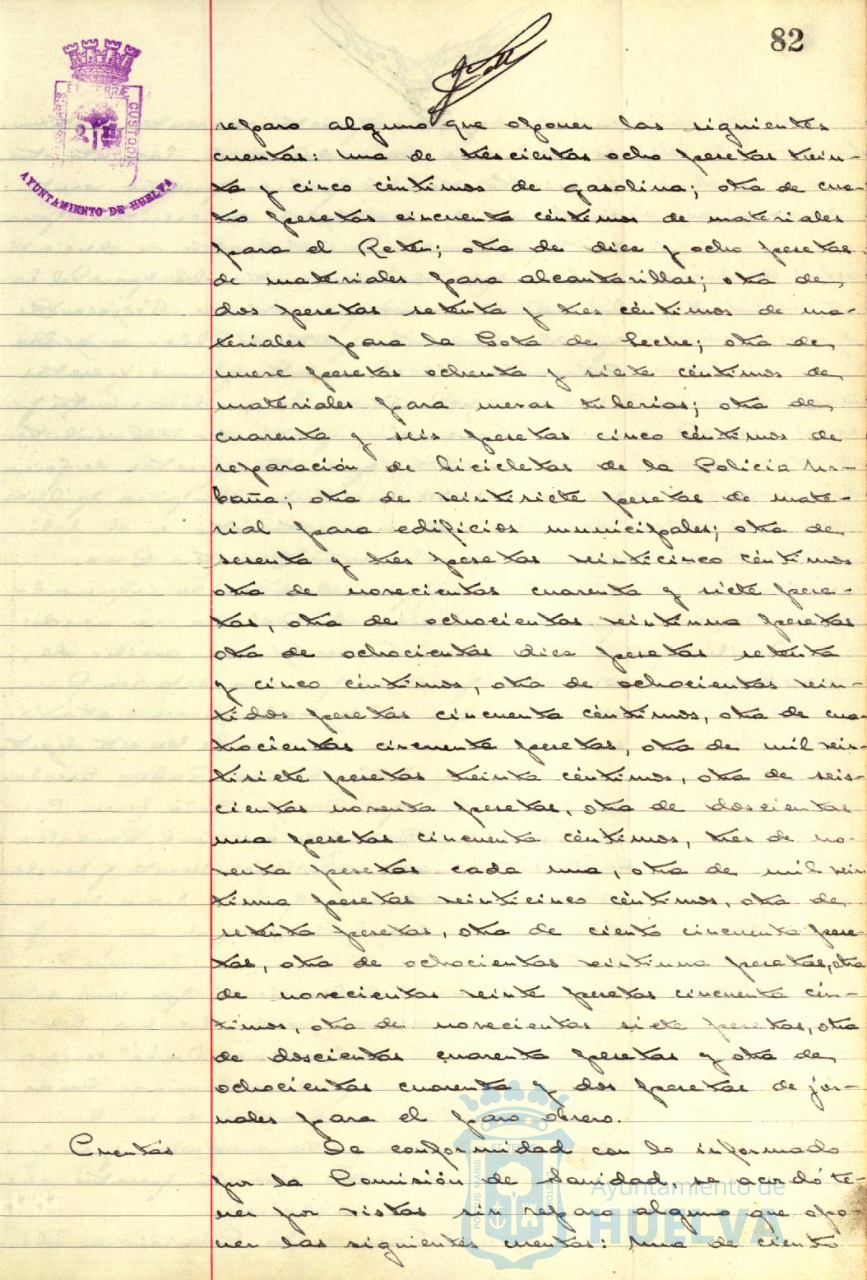 82
AYUNTAMIENTO DE HUELVA
reparo alguno que oponer las siguientes
cuentas: una de trescientas ocho pesetas trein-
ta y cinco céntimos de gasolina; otra de cua-
tro pesetas cincuenta céntimos de materiales
para el Reten; otra de diez y ocho pesetas
de materiales para alcantarillas; otra de
dos pesetas setenta y tres céntimos de ma-
teriales para la Gota de Leche; otra de
nueve pesetas ochenta y siete céntimos de
materiales para nuevas tuberias; otra de
cuarenta y seis pesetas cinco céntimos de
reparación de bicicletas de la Policía Ur-
bana; otra de veintisiete pesetas de mate-
rial para edificios municipales; otra de
sesenta y tres pesetas veinticinco céntimos
otra de novecientas cuarenta y siete pese-
tas, otra de ochocientas veintiuna pesetas
otra de ochocientas diez pesetas setenta
y cinco céntimos, otra de ochocientas vein-
tidos pesetas cincuenta céntimos, otra de cua-
trocientas cincuenta pesetas, otra de mil vein-
tisiete pesetas treinta céntimos, otra de seis-
cientas noventa pesetas, otra de doscientas
una pesetas cincuenta céntimos, tres de no-
venta pesetas cada una, otra de mil vein-
tiuna pesetas veinticinco céntimos, otra de
setenta pesetas, otra de ciento cincuenta pese-
tas, otra de ochocientas veintiuna pesetas, otra
de novecientas veinte pesetas cincuenta cén-
timos, otra de novecientas siete pesetas, otra
de doscientas cuarenta pesetas y otra de
ochocientas cuarenta y dos pesetas de jor-
nales para el paro obrero.
Cuentas De conformidad con lo informado
por la Comisión de Sanidad, se acordó te-
ner por vistas sin reparo alguno que opo-
ner las siguientes cuentas: una de ciento
Ayuntamiento de
HUELVA